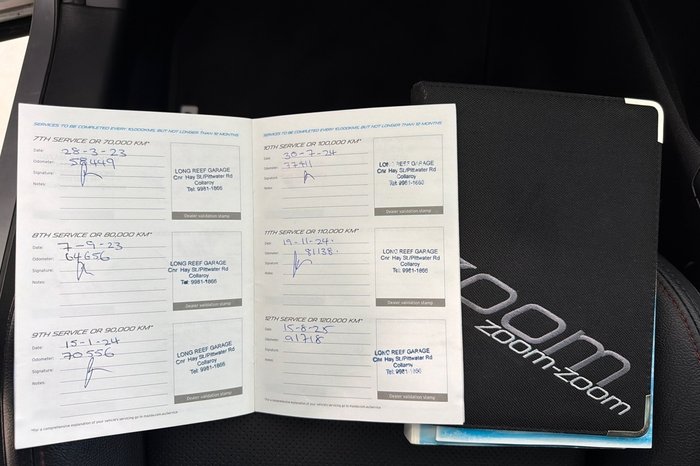 SERVICES TO BE COMPLETED EVERY 10,000KMS, BUT NOT LONGER THAN 12 MONTHS
7TH SERVICE OR 70,000 KM*
Date: 28-3-23
Odometer: 58449
Signature:
Notes:
LONG REEF GARAGE
Cnr Hay St/Pittwater Rd
Collaroy
Tel: 9981-1866
Dealer validation stamp
8TH SERVICE OR 80,000 KM*
Date: 7-9-23
Odometer: 64656
Signature:
Notes:
LONG REEF GARAGE
Cnr Hay St/Pittwater Rd
Collaroy
Tel: 9981-1866
Dealer validation stamp
9TH SERVICE OR 90,000 KM*
Date: 15-1-24
Odometer: 70556
Signature:
Notes:
LONG REEF GARAGE
Cnr Hay St/Pittwater Rd
Collaroy
Tel: 9981-1866
Dealer validation stamp
*For a comprehensive explanation of your vehicle's servicing go to mazda.com.au/service
SERVICES TO BE COMPLETED EVERY 10,000KMS, BUT NOT LONGER THAN 12 MONTHS
10TH SERVICE OR 100,000 KM*
Date: 30-7-24
Odometer: 77411
Signature:
Notes:
LONG REEF GARAGE
Cnr Hay St/Pittwater Rd
Collaroy
Tel: 9981-1866
Dealer validation stamp
11TH SERVICE OR 110,000 KM*
Date: 19-11-24.
Odometer: 81138.
Signature:
Notes:
LONG REEF GARAGE
Cnr Hay St/Pittwater Rd
Collaroy
Tel: 9981-1866
Dealer validation stamp
12TH SERVICE OR 120,000 KM*
Date: 15-8-25
Odometer: 91718
Signature:
Notes:
LONG REEF GARAGE
Cnr Hay St/Pittwater Rd
Collaroy
Tel: 9981-1866
Dealer validation stamp
*For a comprehensive explanation of your vehicle's servicing go to mazda.com.au/service
zoom
zoom-zoom